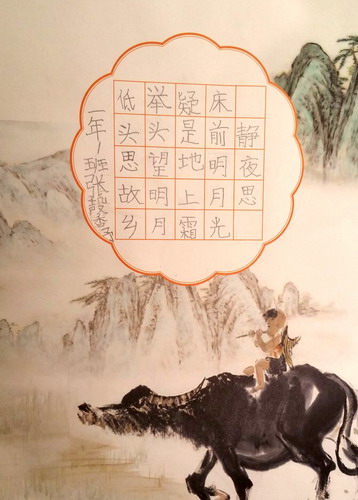 静夜思
床前明月光
疑是地上霜
举头望明月
低头思故乡
一年1班张